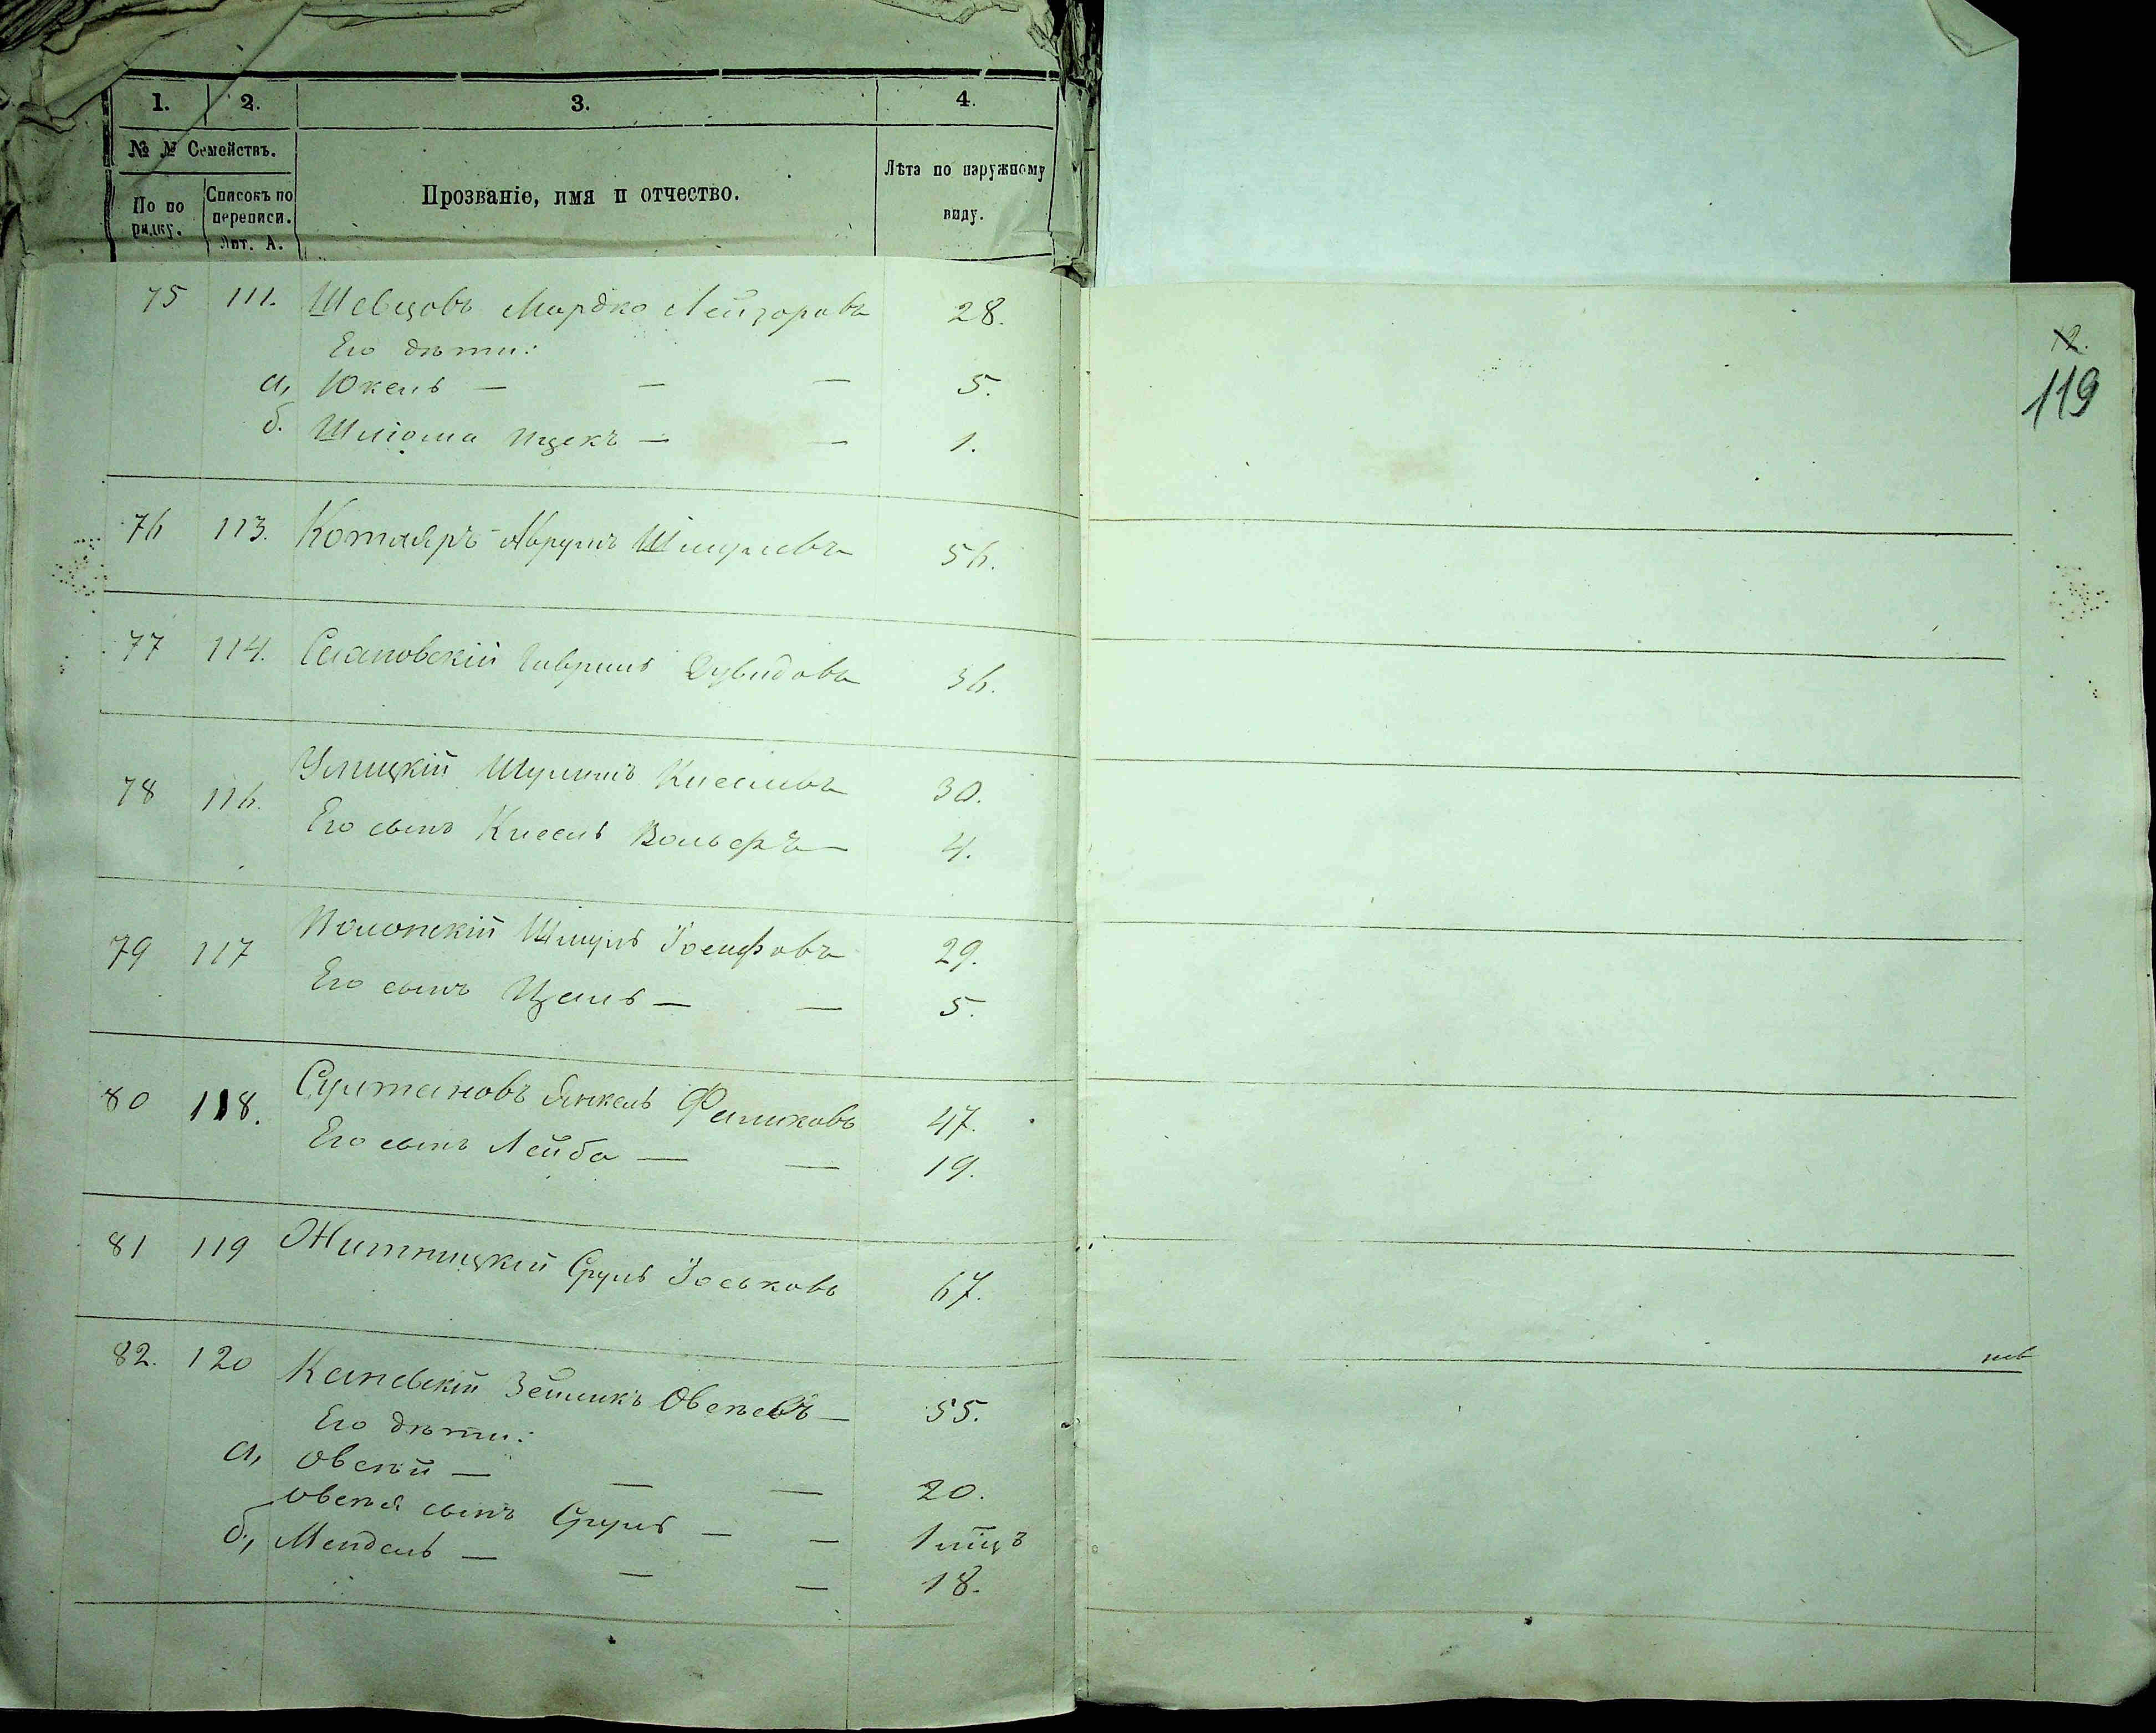 1. 2. 3. 4.
№ № Семействъ.
По по рядку. Списокъ по переписи. Лит. А. Прозваніе, имя и отчество. Лѣта по наружному виду.
75 111. Шевцовъ Мордко Лейзоровъ 28.
Его дѣти:
а, Юкель — — — 5.
б. Шліома Ицекъ — — 1.
76 113. Котляръ Аврумъ Шмулевъ 56.
77 114. Гаврилъ Дувидовъ 36.
78 116. Улицкій Шулимъ Киселевъ 30.
Его сынъ Кисель Вольфъ — 4.
79 117 Полонскій Шмуль Іосифовъ 29.
Его сынъ — — 5.
80 118. Султановъ Янкель Фальковъ 47.
Его сынъ Лейба — — 19.
81 119 Житницкій Сруль Іоськовъ 67.
82. 120 Каневскій Зейликъ Овсѣевъ — 55.
Его дѣти:
а, Овсѣй — — — 20.
Овсѣя сынъ Сруль — — 1 мцъ
б, Мендель — — — 18.
12.
119